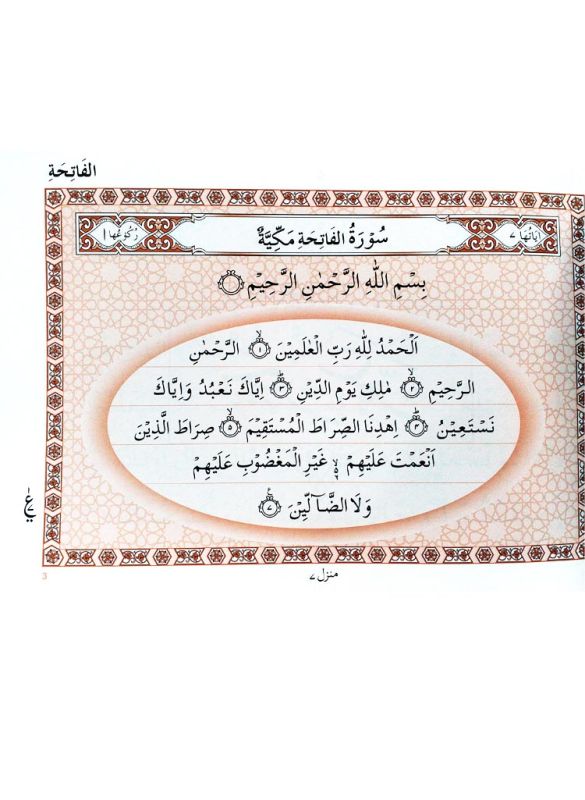 الفَاتِحَةِ
اٰيَاتُهَا ٧ سُوْرَةُ الفَاتِحَةِ مَكِّيَّةٌ رُكُوْعُهَا ١
بِسْمِ اللّٰهِ الرَّحْمٰنِ الرَّحِيْمِ
اَلْحَمْدُ لِلّٰهِ رَبِّ الْعٰلَمِيْنَ ۙ‏﴿١﴾ الرَّحْمٰنِ
الرَّحِيْمِ ۙ‏﴿٢﴾ مٰلِكِ يَوْمِ الدِّيْنِ ؕ‏﴿٣﴾ اِيَّاكَ نَعْبُدُ وَاِيَّاكَ
نَسْتَعِيْنُ ؕ‏﴿٣﴾ اِهْدِنَا الصِّرَاطَ الْمُسْتَقِيْمَ ۙ‏﴿٥﴾ صِرَاطَ الَّذِيْنَ
اَنْعَمْتَ عَلَيْهِمْ ۙ غَيْرِ الْمَغْضُوْبِ عَلَيْهِمْ
وَلَا الضَّآلِّيْنَ ﴿٧﴾
ع
3 منزل ٧